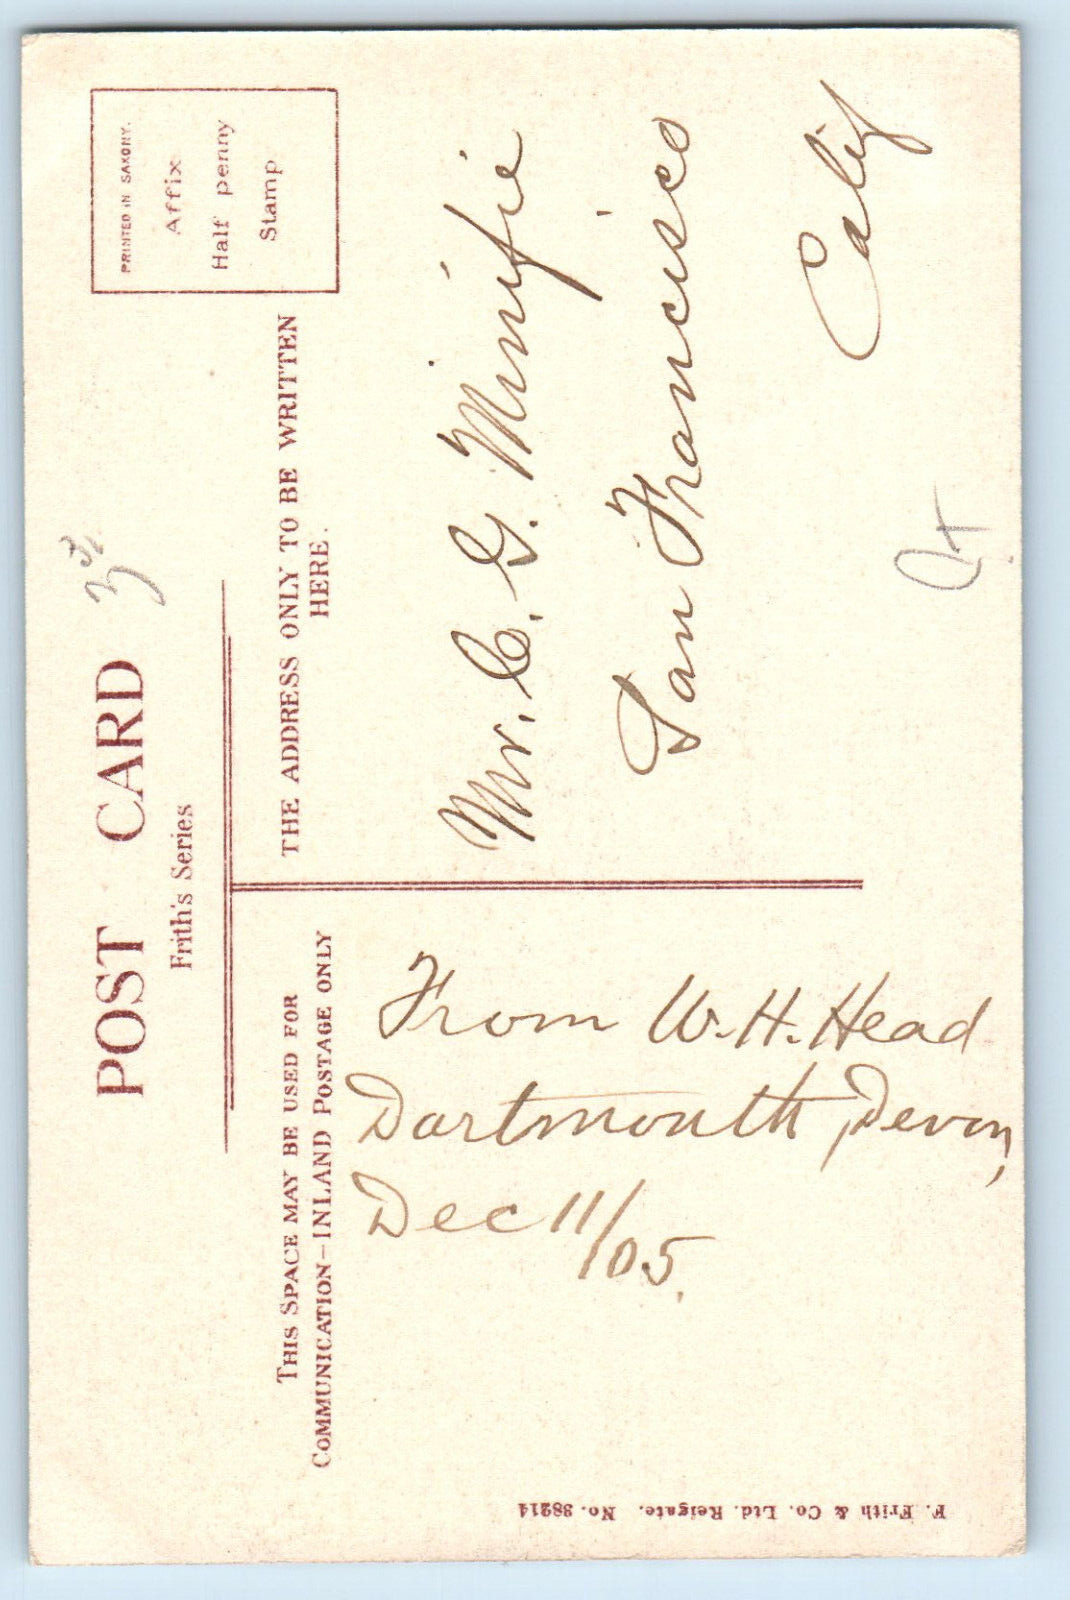 POST CARD
Frith's Series
PRINTED IN SAXONY.
Affix
Half penny
Stamp
THE ADDRESS ONLY TO BE WRITTEN
HERE.
Mr. C. G. Minifie
San Francisco
Calif
THIS SPACE MAY BE USED FOR
COMMUNICATION—INLAND POSTAGE ONLY
From W. H. Head
Dartmouth, Devon,
Dec 11/05.
F. Frith & Co. Ltd. Reigate. No. 38214